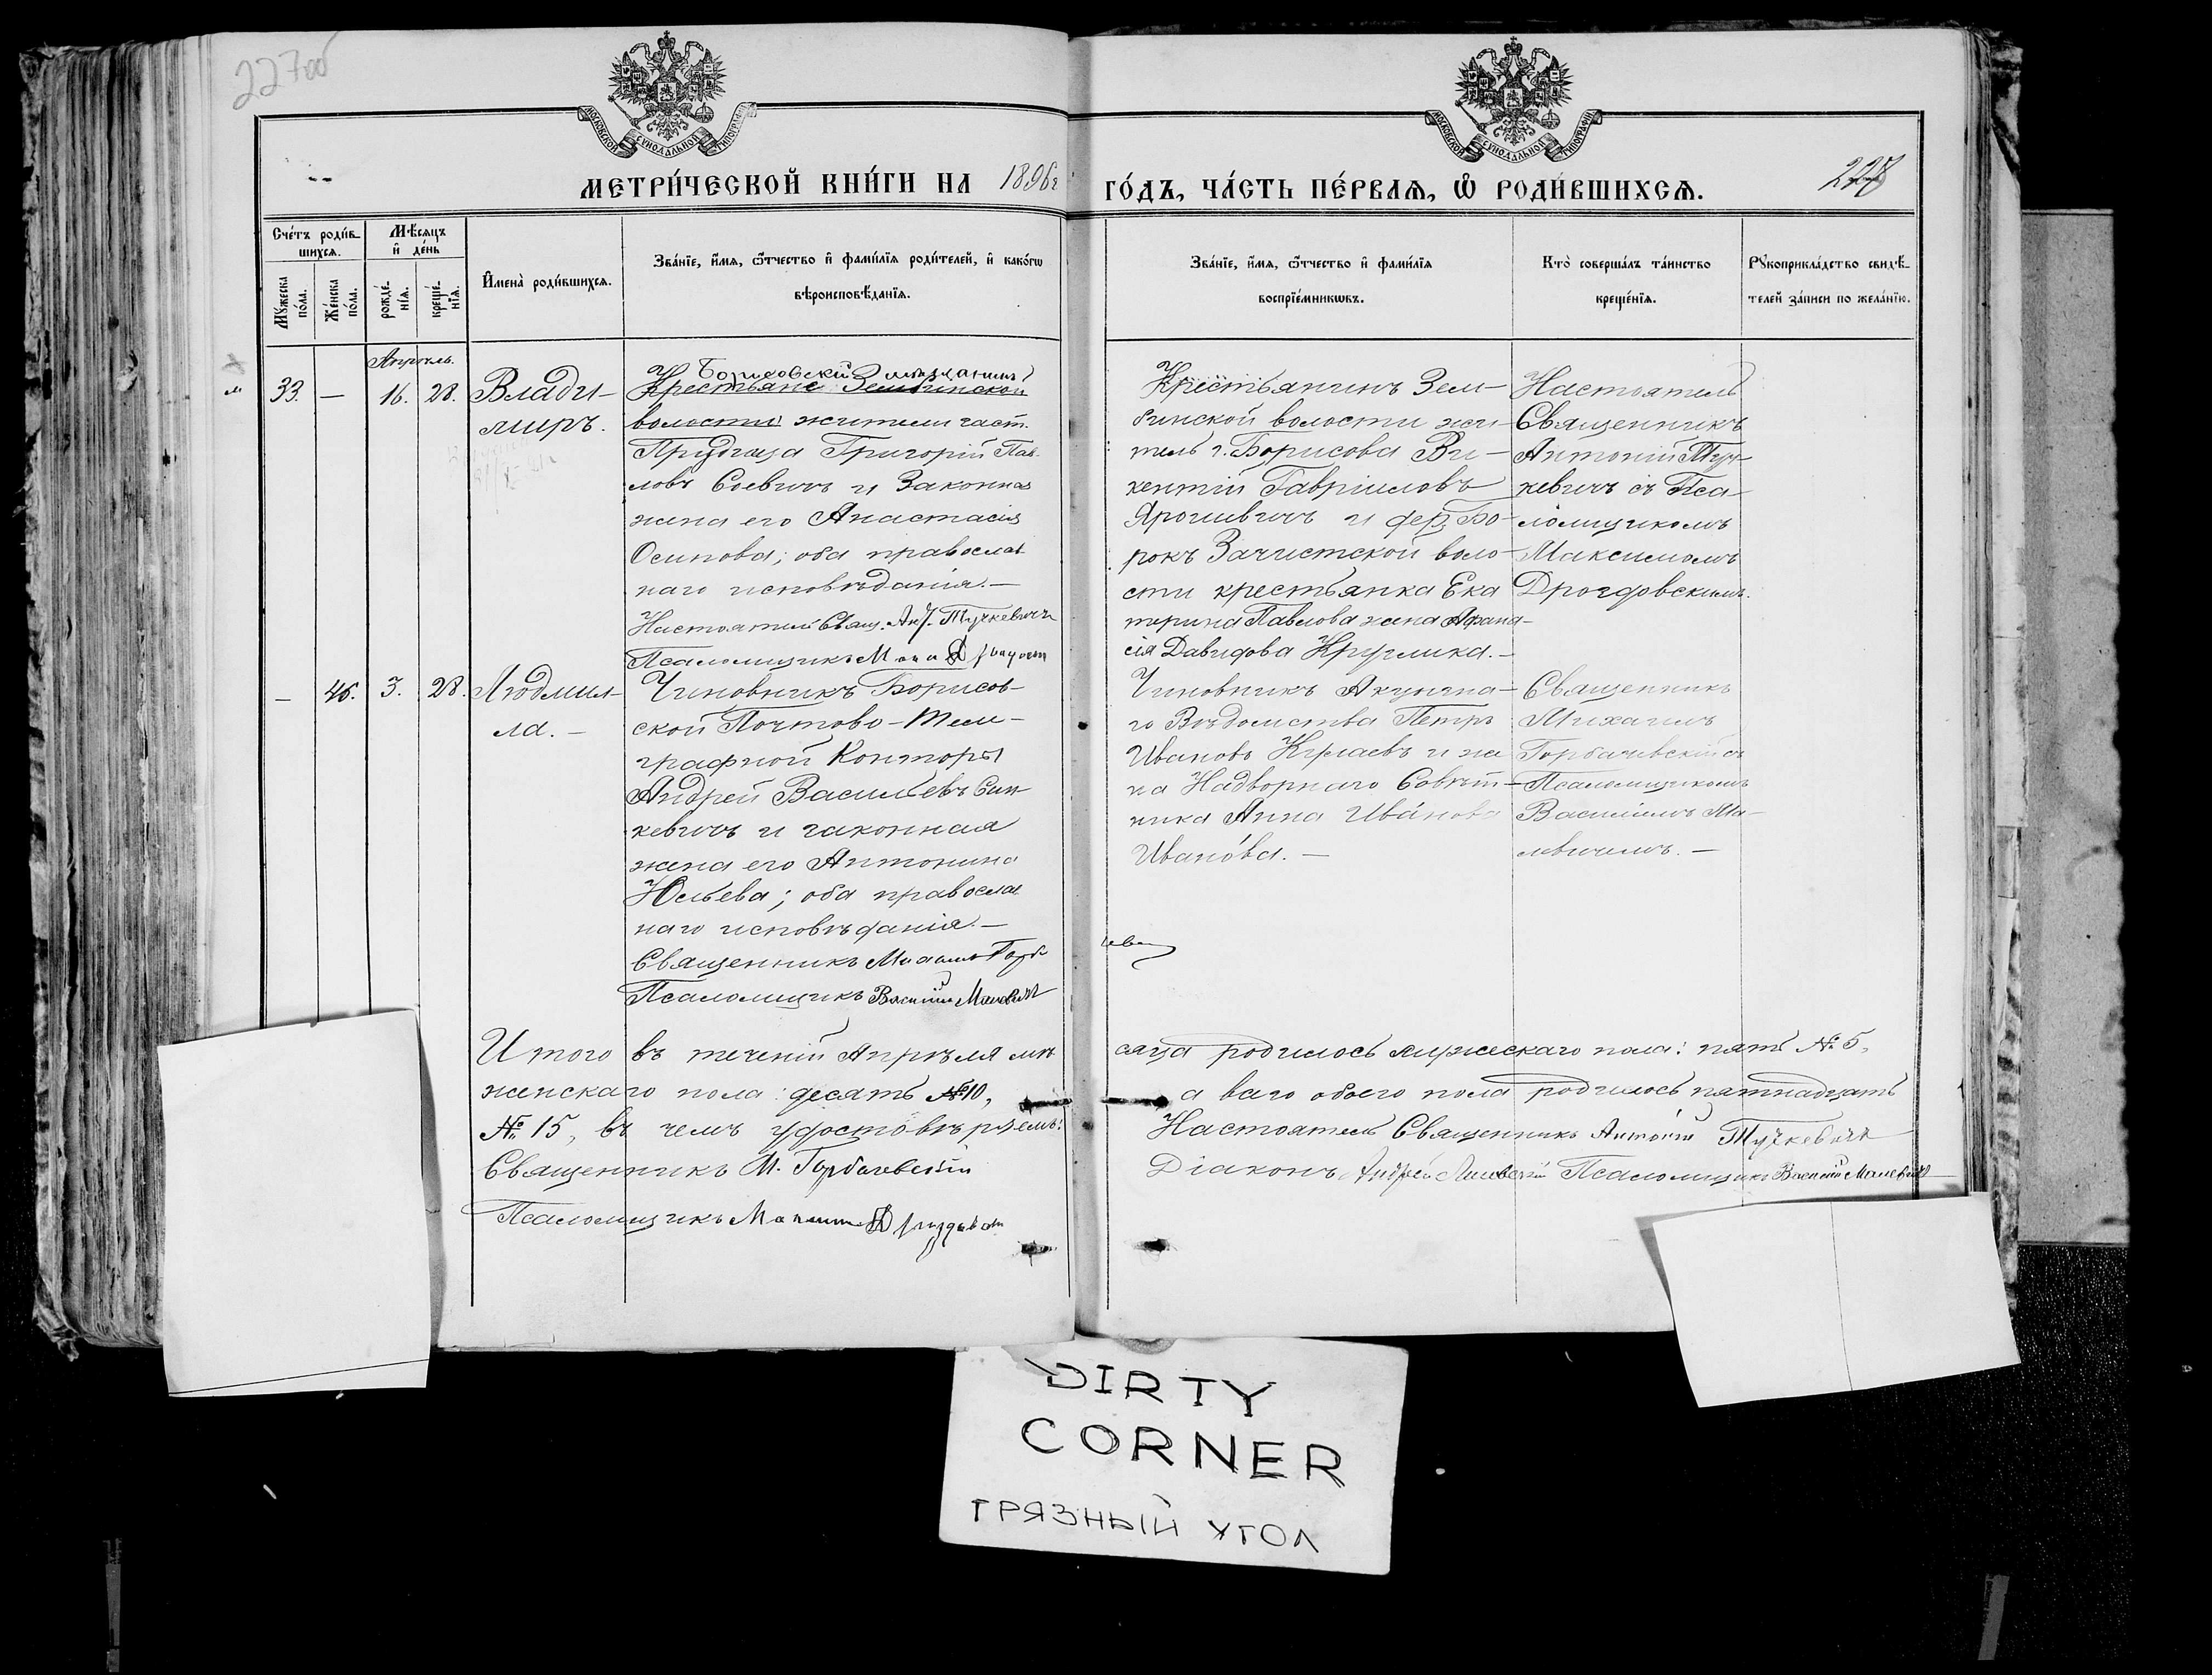 227об
МОСКОВСКОЙ СѴНОДАЛЬНОЙ ТИПОГРАФІИ
МОСКОВСКОЙ СѴНОДАЛЬНОЙ ТИПОГРАФІИ
МЕТРИ́ЧЕСКОЙ КНИ́ГИ НА 1896 г
ГО́ДЪ, ЧА́СТЬ ПЕ́РВАѦ, Ѽ РОДИ́ВШИХСѦ.
Сче́тъ роди́в-
шихсѧ.
Мꙋ́жеска по́ла.
Же́нска по́ла.
Мѣ́сѧцъ и҆ де́нь
рожде́-нїѧ.
креще́-нїѧ.
И҆мена̀ роди́вшихсѧ.
Зва́нїе, и҆́мѧ, ѻ҆́тчество и҆ фами́лїѧ роди́телей, и҆ како́гѡ
вѣроисповѣ́данїѧ.
Зва́нїе, и҆́мѧ, ѻ҆́тчество и҆ фами́лїѧ
воспрїе́мникѡвъ.
Кто̀ соверша́лъ та́инство
креще́нїѧ.
Рꙋкоприкла́дство свидѣ́-
телей за́писи по жела́нїю.
Апрель.
33. — 16. 28.
Влади-
миръ.
Борисовскій мѣщанинъ
Крестьяне Зембинской
волости жители част.
Прудища Григорій Пав-
ловъ Соевичъ и Законная
жена его Анастасія
Осипова; оба православ
наго исповѣданія. —
Настоятель Свящ. Ант. Тучкевичъ
Псаломщикъ
Крестьянинъ Зем-
бинской волости жи-
тель г. Борисова Ви-
кентій Гавріиловъ
Ярошевичъ и дер. Бо-
рокъ Зачистской воло-
сти крестьянка Ека
терина Павлова жена Афана-
сія Давидова Круглика. —
Настоятель
Священникъ
Антоній Туч-
кевичъ съ Пса-
ломщикомъ
Максимомъ
Дроздовскимъ.
— 46. 3. 28.
Людмил-
ла. —
Чиновникъ Борисов-
ской Почтово-Теле-
графной Конторы
Андрей Васильевъ Син-
кевичъ и законная
жена его Антонина
Юльева; оба православ
наго исповѣданія. —
Священникъ Михаилъ Горба
чевскій
Псаломщикъ Василій Малевичъ
Чиновникъ Акцизна-
го Вѣдомства Петръ
Ивановъ и же
на Надворнаго Совѣт-
ника Анна Иванова
Иванова. —
Священникъ
Михаилъ
Горбачевскій съ
Псаломщикомъ
Василіемъ Ма-
левичемъ. —
Итого въ теченіи Апрѣля мѣ
сяца родилось мужескаго пола: пять № 5,
женскаго пола: десять № 10,
а всего обоего пола родилось пятнадцать
№ 15, въ чемъ удостовѣряемъ:
Настоятель Священникъ Антоній Тучкевичъ
Священникъ М. Горбачевскій
Діаконъ Андрей Псаломщикъ Василій Малевичъ
Псаломщикъ
DIRTY
CORNER
ГРЯЗНЫЙ УГОЛ